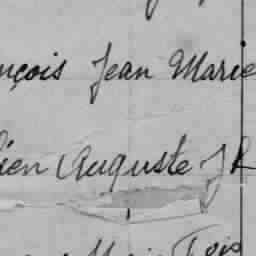 nçois Jean Marie
ien Auguste J R